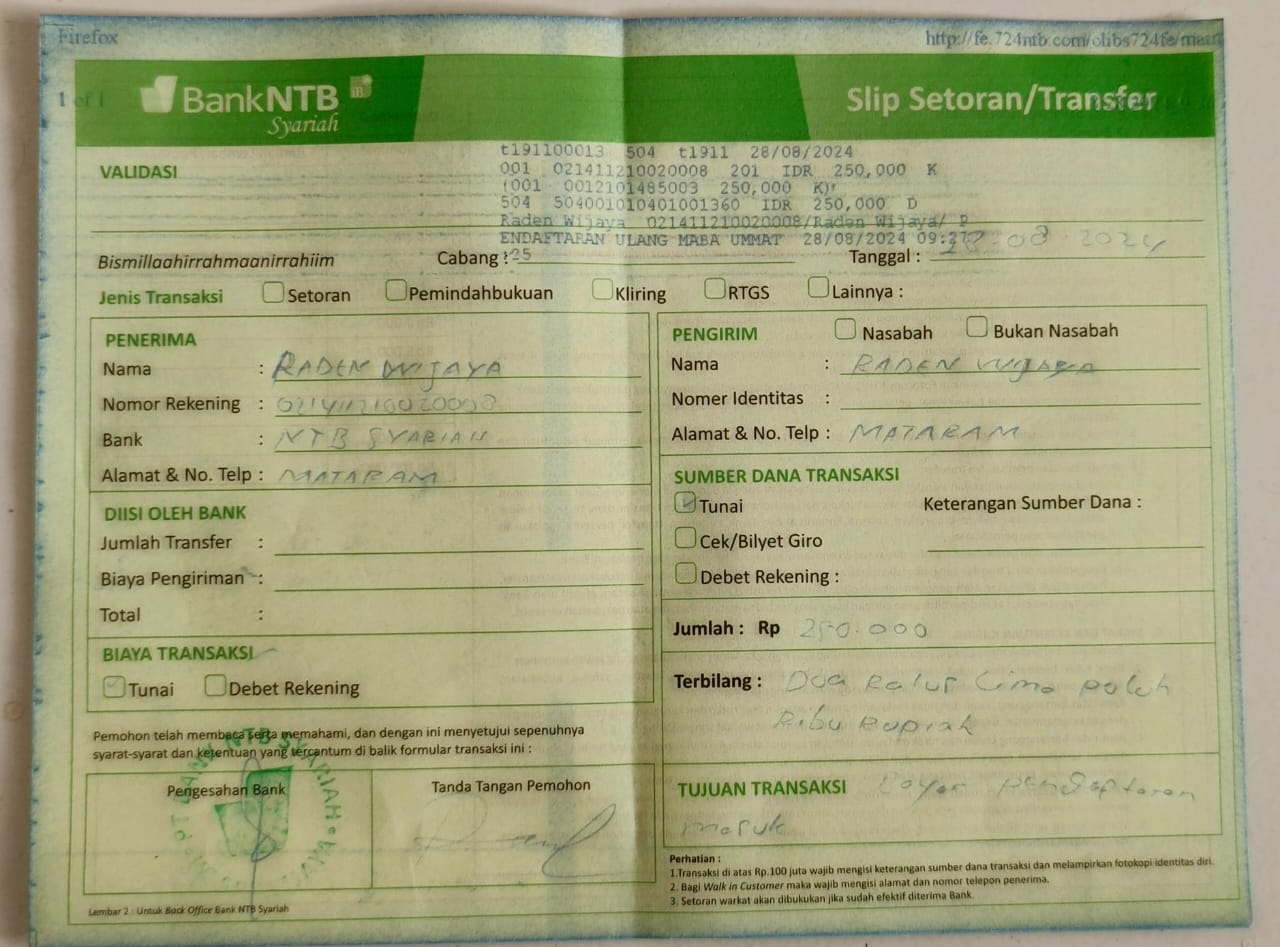 Firefox
http://fe.724ntb.com/olibs724fe/main
1 of 1
BankNTB
Syariah
Slip Setoran/Transfer
VALIDASI
t191100013 504 t1911 28/08/2024
001 021411210020008 201 IDR 250,000 K
(001 0012101485003 250,000 K)
504 504001010401001360 IDR 250,000 D
Raden Wijaya 021411210020008/Raden Wijaya/ P
ENDAFTARAN ULANG MABA UMMAT 28/08/2024 09:27
:25
Bismillaahirrahmaanirrahiim
Cabang :
Tanggal : 28-08-2024
Jenis Transaksi Setoran Pemindahbukuan Kliring RTGS Lainnya :
PENERIMA
Nama : RADEN WIJAYA
Nomor Rekening : 021411210020008
Bank : NTB SYARIAH
Alamat & No. Telp : MATARAM
DIISI OLEH BANK
Jumlah Transfer :
Biaya Pengiriman :
Total :
BIAYA TRANSAKSI
Tunai Debet Rekening
Pemohon telah membaca serta memahami, dan dengan ini menyetujui sepenuhnya
syarat-syarat dan ketentuan yang tercantum di balik formular transaksi ini :
Pengesahan Bank
Tanda Tangan Pemohon
PT BANK NTB SYARIAH
Lembar 2 : Untuk Back Office Bank NTB Syariah
PENGIRIM Nasabah Bukan Nasabah
Nama : RADEN WIJAYA
Nomer Identitas :
Alamat & No. Telp : MATARAM
SUMBER DANA TRANSAKSI
Tunai Keterangan Sumber Dana :
Cek/Bilyet Giro
Debet Rekening :
Jumlah : Rp 250.000
Terbilang : Dua Ratus Lima puluh
Ribu Rupiah
TUJUAN TRANSAKSI Bayar Pendaftaran
masuk
Perhatian :
1.Transaksi di atas Rp.100 juta wajib mengisi keterangan sumber dana transaksi dan melampirkan fotokopi identitas diri.
2. Bagi Walk in Customer maka wajib mengisi alamat dan nomor telepon penerima.
3. Setoran warkat akan dibukukan jika sudah efektif diterima Bank.